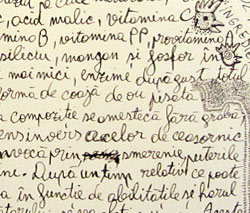 acid malic, vitamina
mino B, vitamina PP, provitamina
siliciu, mangan și fosfor în
mai mici, enzime
formă de coajă de ou pisată
compoziție se amestecă fără grabă
sens invers acelor de ceasornic
nvocă prin smerenie puterile
ne. După un timp relativ ce poate
a în funcție de abilitatile și harul